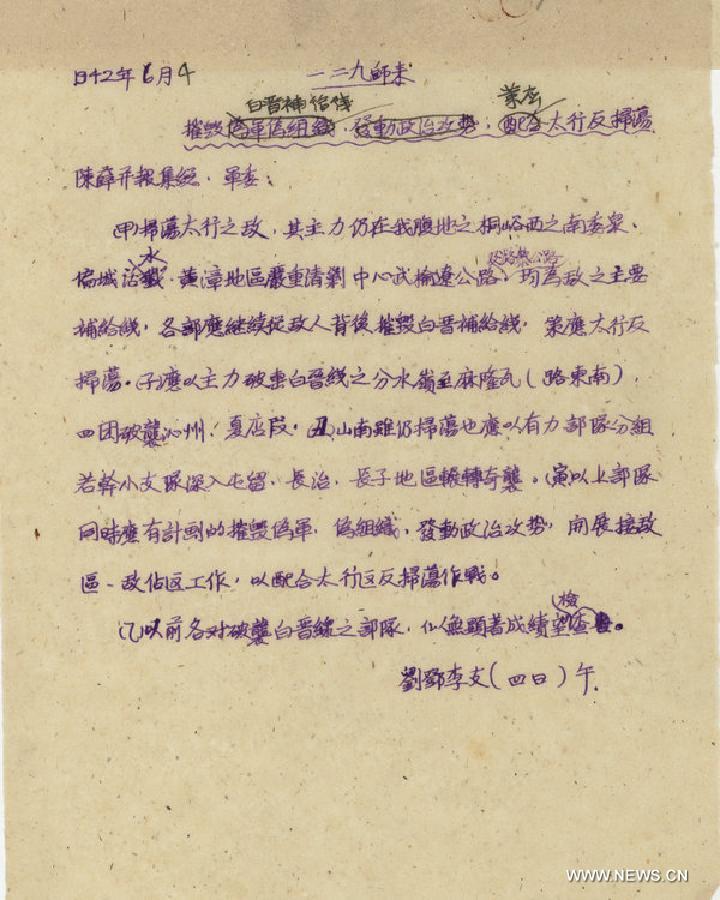 1942年6月4 一二九師来
白晋補給线 策应
摧毁偽軍偽組織．發動政治攻势，配合太行反掃蕩
陳薛并報集總．軍委：
(甲)掃蕩太行之敌，其主力仍在我腹地之桐峪西之南委泉、
水 及路黎公路
偏城．黄漳地區嚴重清剿中心武榆遼公路，均為敌之主要
補給線，各部應継续從敌人背後摧毁白晋補給线，策應太行反
掃蕩。子應以主力破击白晋线之分水嶺至麻隆瓦(路東南)，
四团破襲沁州、夏店段，丑山南雖仍掃蕩也應以有力部隊分组
若幹小支隊深入屯留、長治、長子地區輾轉奇襲。寅以上部隊
同時應有計劃的摧毁偽軍，偽組織，發動政治攻势，開展接敌
區、敌佔区工作，以配合太行区反掃蕩作戰。
檢
(乙)以前各对破襲白晋線之部隊，似無顯著成績望查。
劉鄧李支(四日)午．
WWW.NEWS.CN